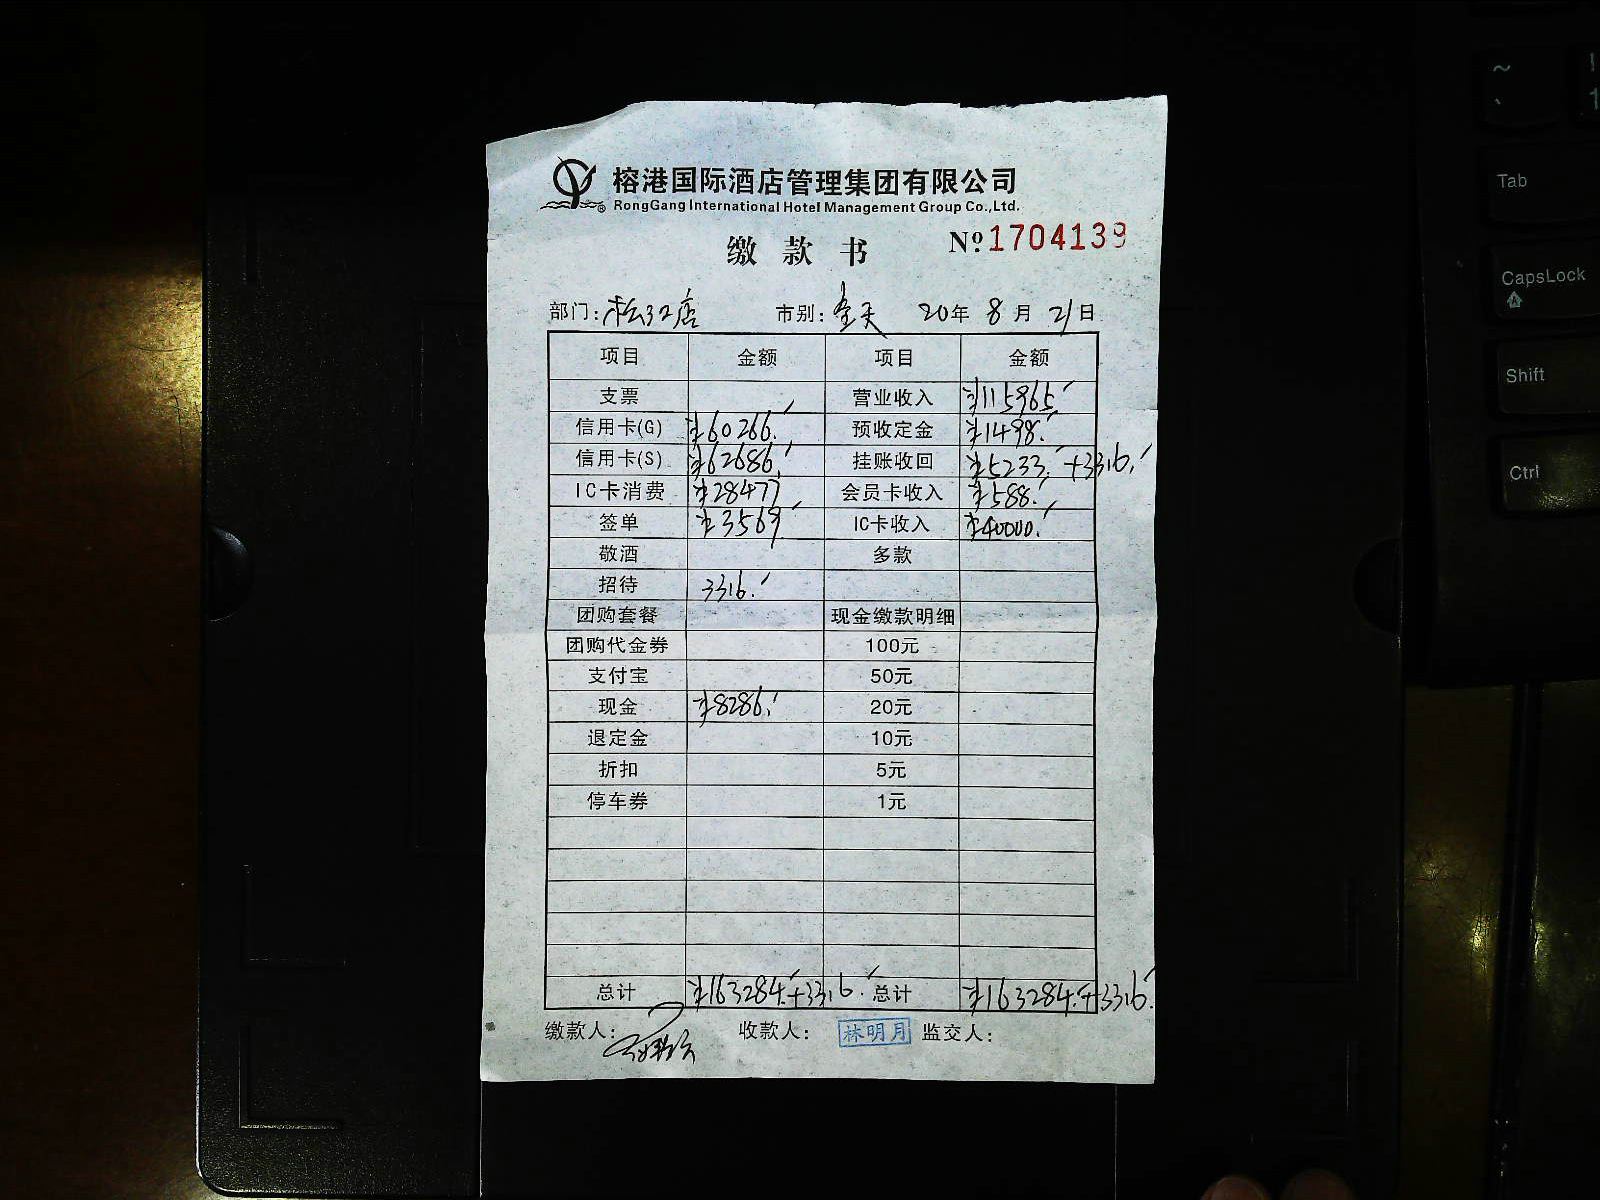 榕港国际酒店管理集团有限公司
RongGang International Hotel Management Group Co.,Ltd.
缴款书 №1704139
部门:松江店 市别:全天 20年8月21日
项目 金额 项目 金额
支票 营业收入 ¥115965.
信用卡(G) ¥60266. 预收定金 ¥1498.
信用卡(S) ¥62686. 挂账收回 ¥5233.+3316.
IC卡消费 ¥28477 会员卡收入 ¥588.
签单 ¥3569 IC卡收入 ¥40000.
敬酒 多款
招待 3316.
团购套餐 现金缴款明细
团购代金券 100元
支付宝 50元
现金 ¥8286. 20元
退定金 10元
折扣 5元
停车券 1元
总计 ¥163284.+3316. 总计 ¥163284.+3316.
缴款人: 收款人: 林明月 监交人:
~
Tab
CapsLock
Shift
Ctrl